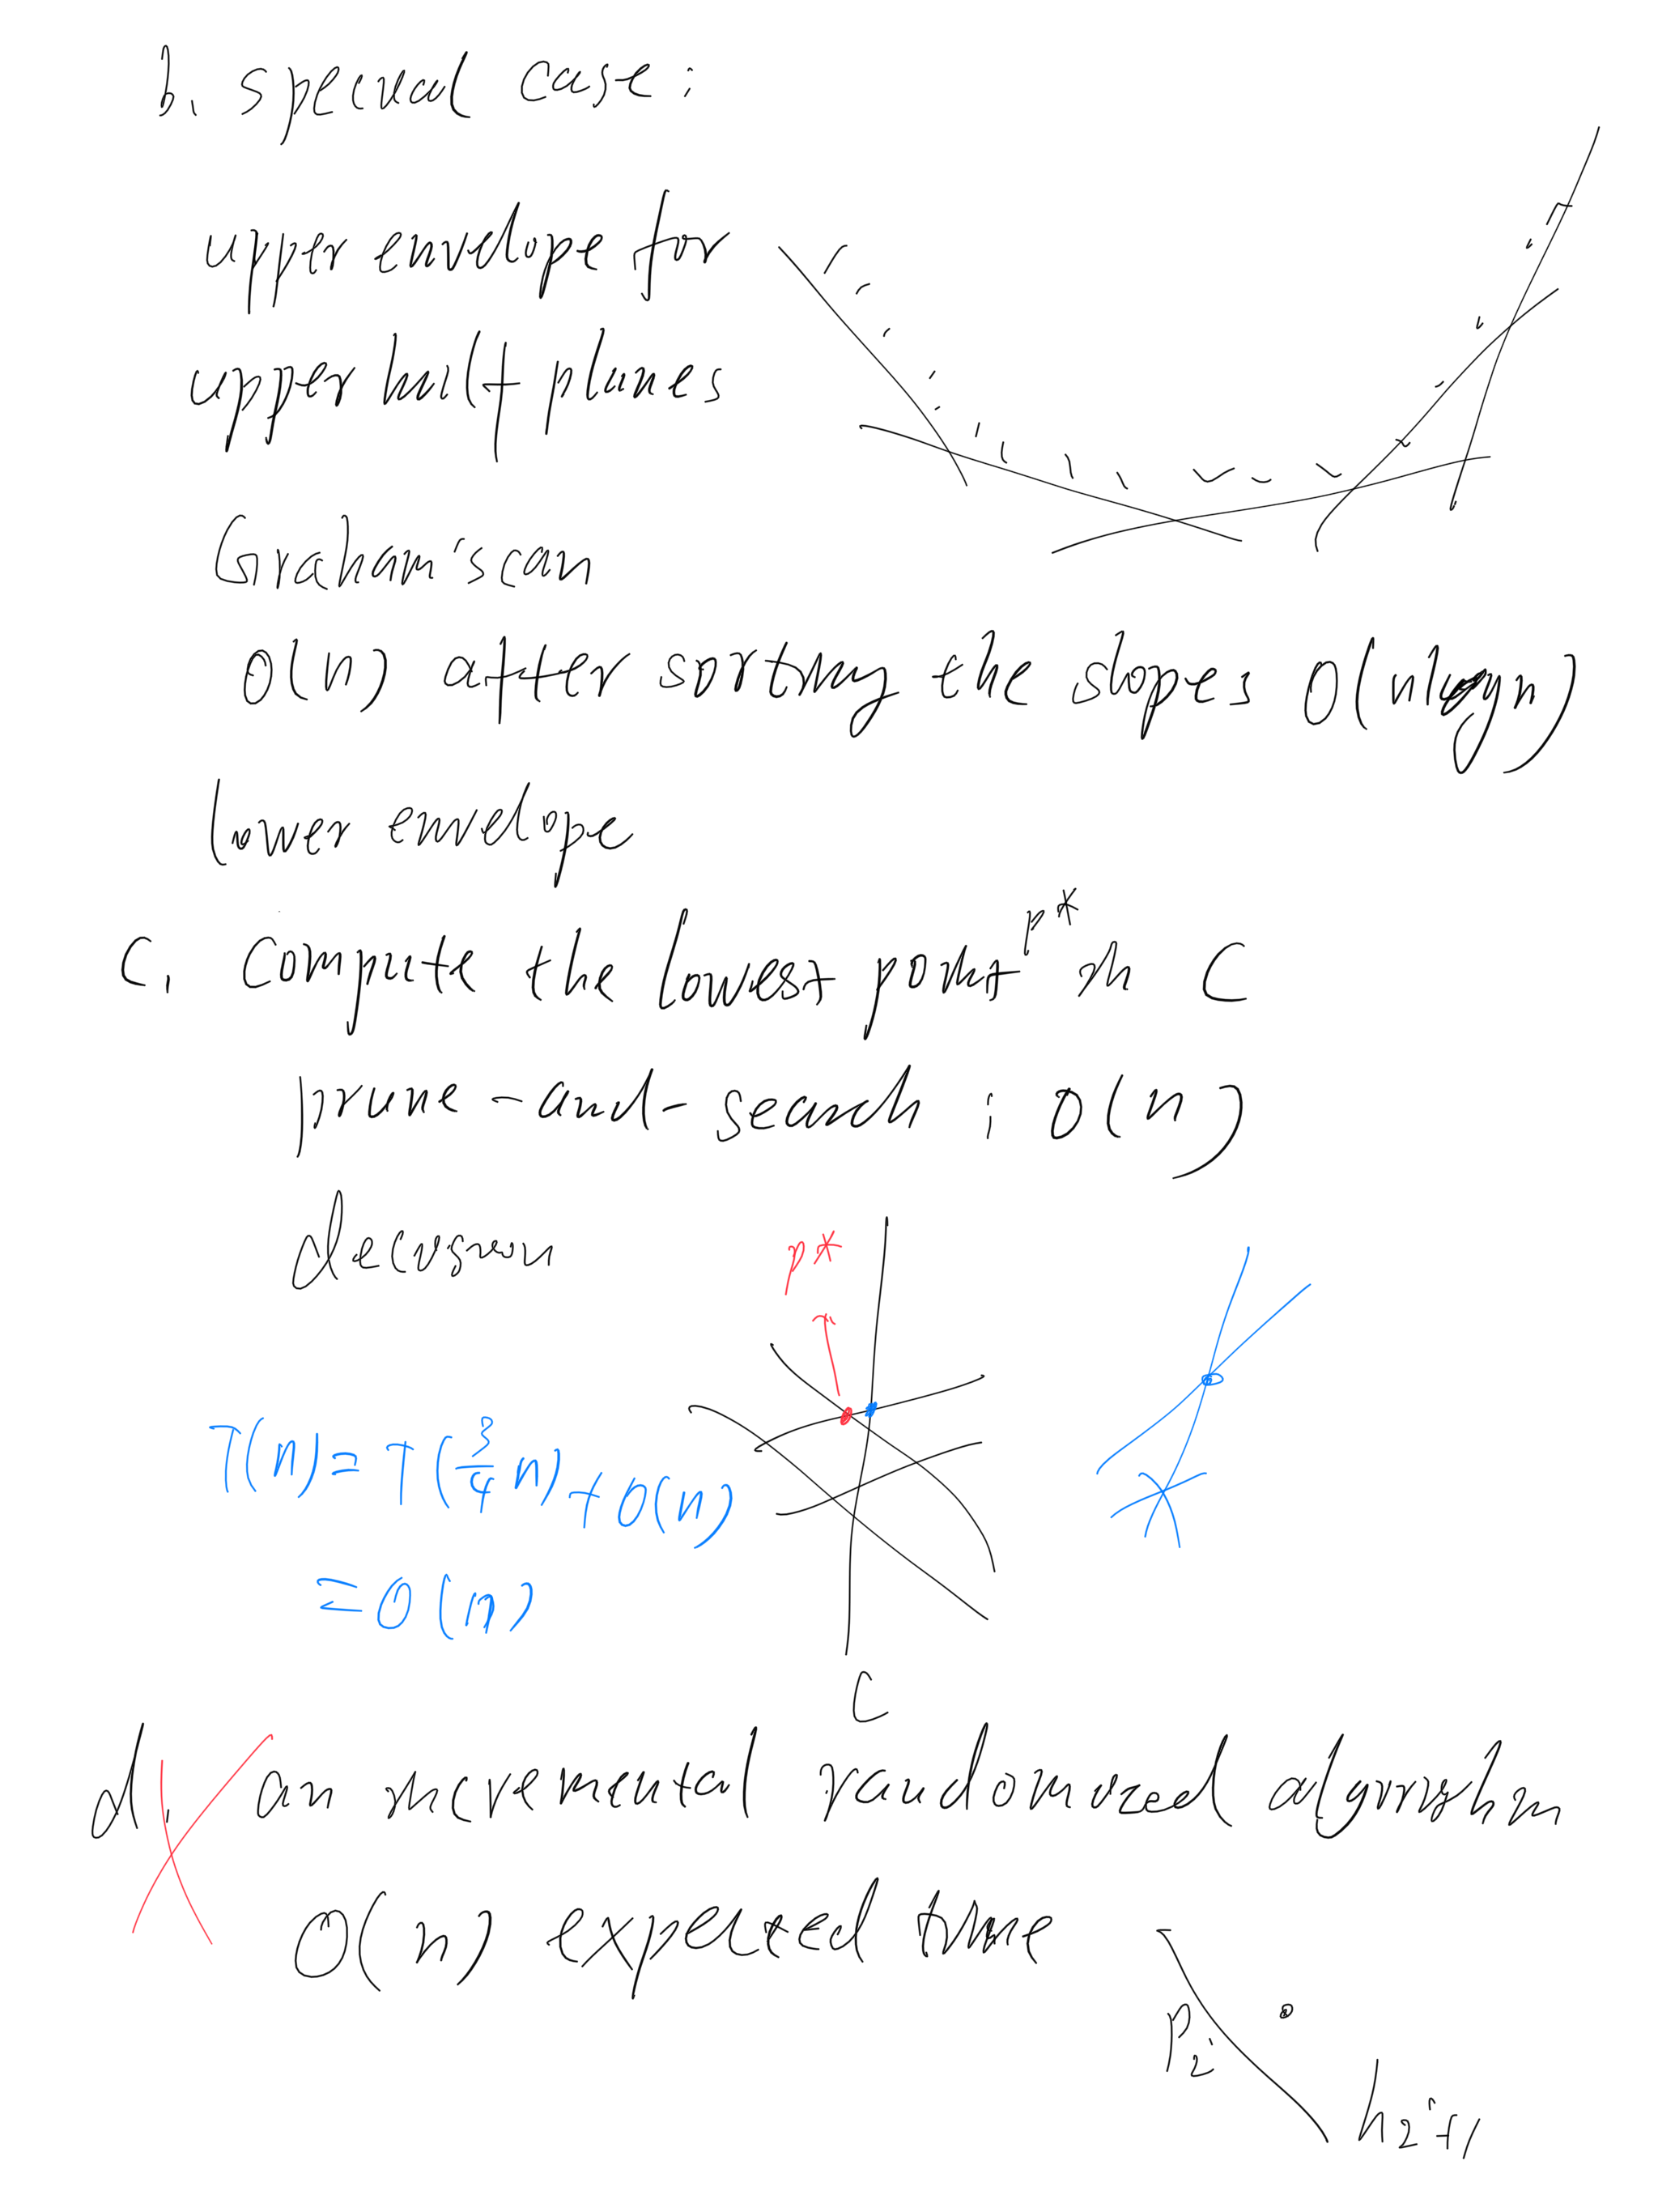 b. special case:
upper envelope for
upper half planes
Graham's scan
O(n) after sorting the slopes O(nlogn)
lower envelope
c. compute the lowest point p* in C
prune-and-search: O(n)
decision
p*
T(n) = T(3/4 n) + O(n)
= O(n)
C
d. an incremental randomized algorithm
O(n) expected time
Pi
hi+1